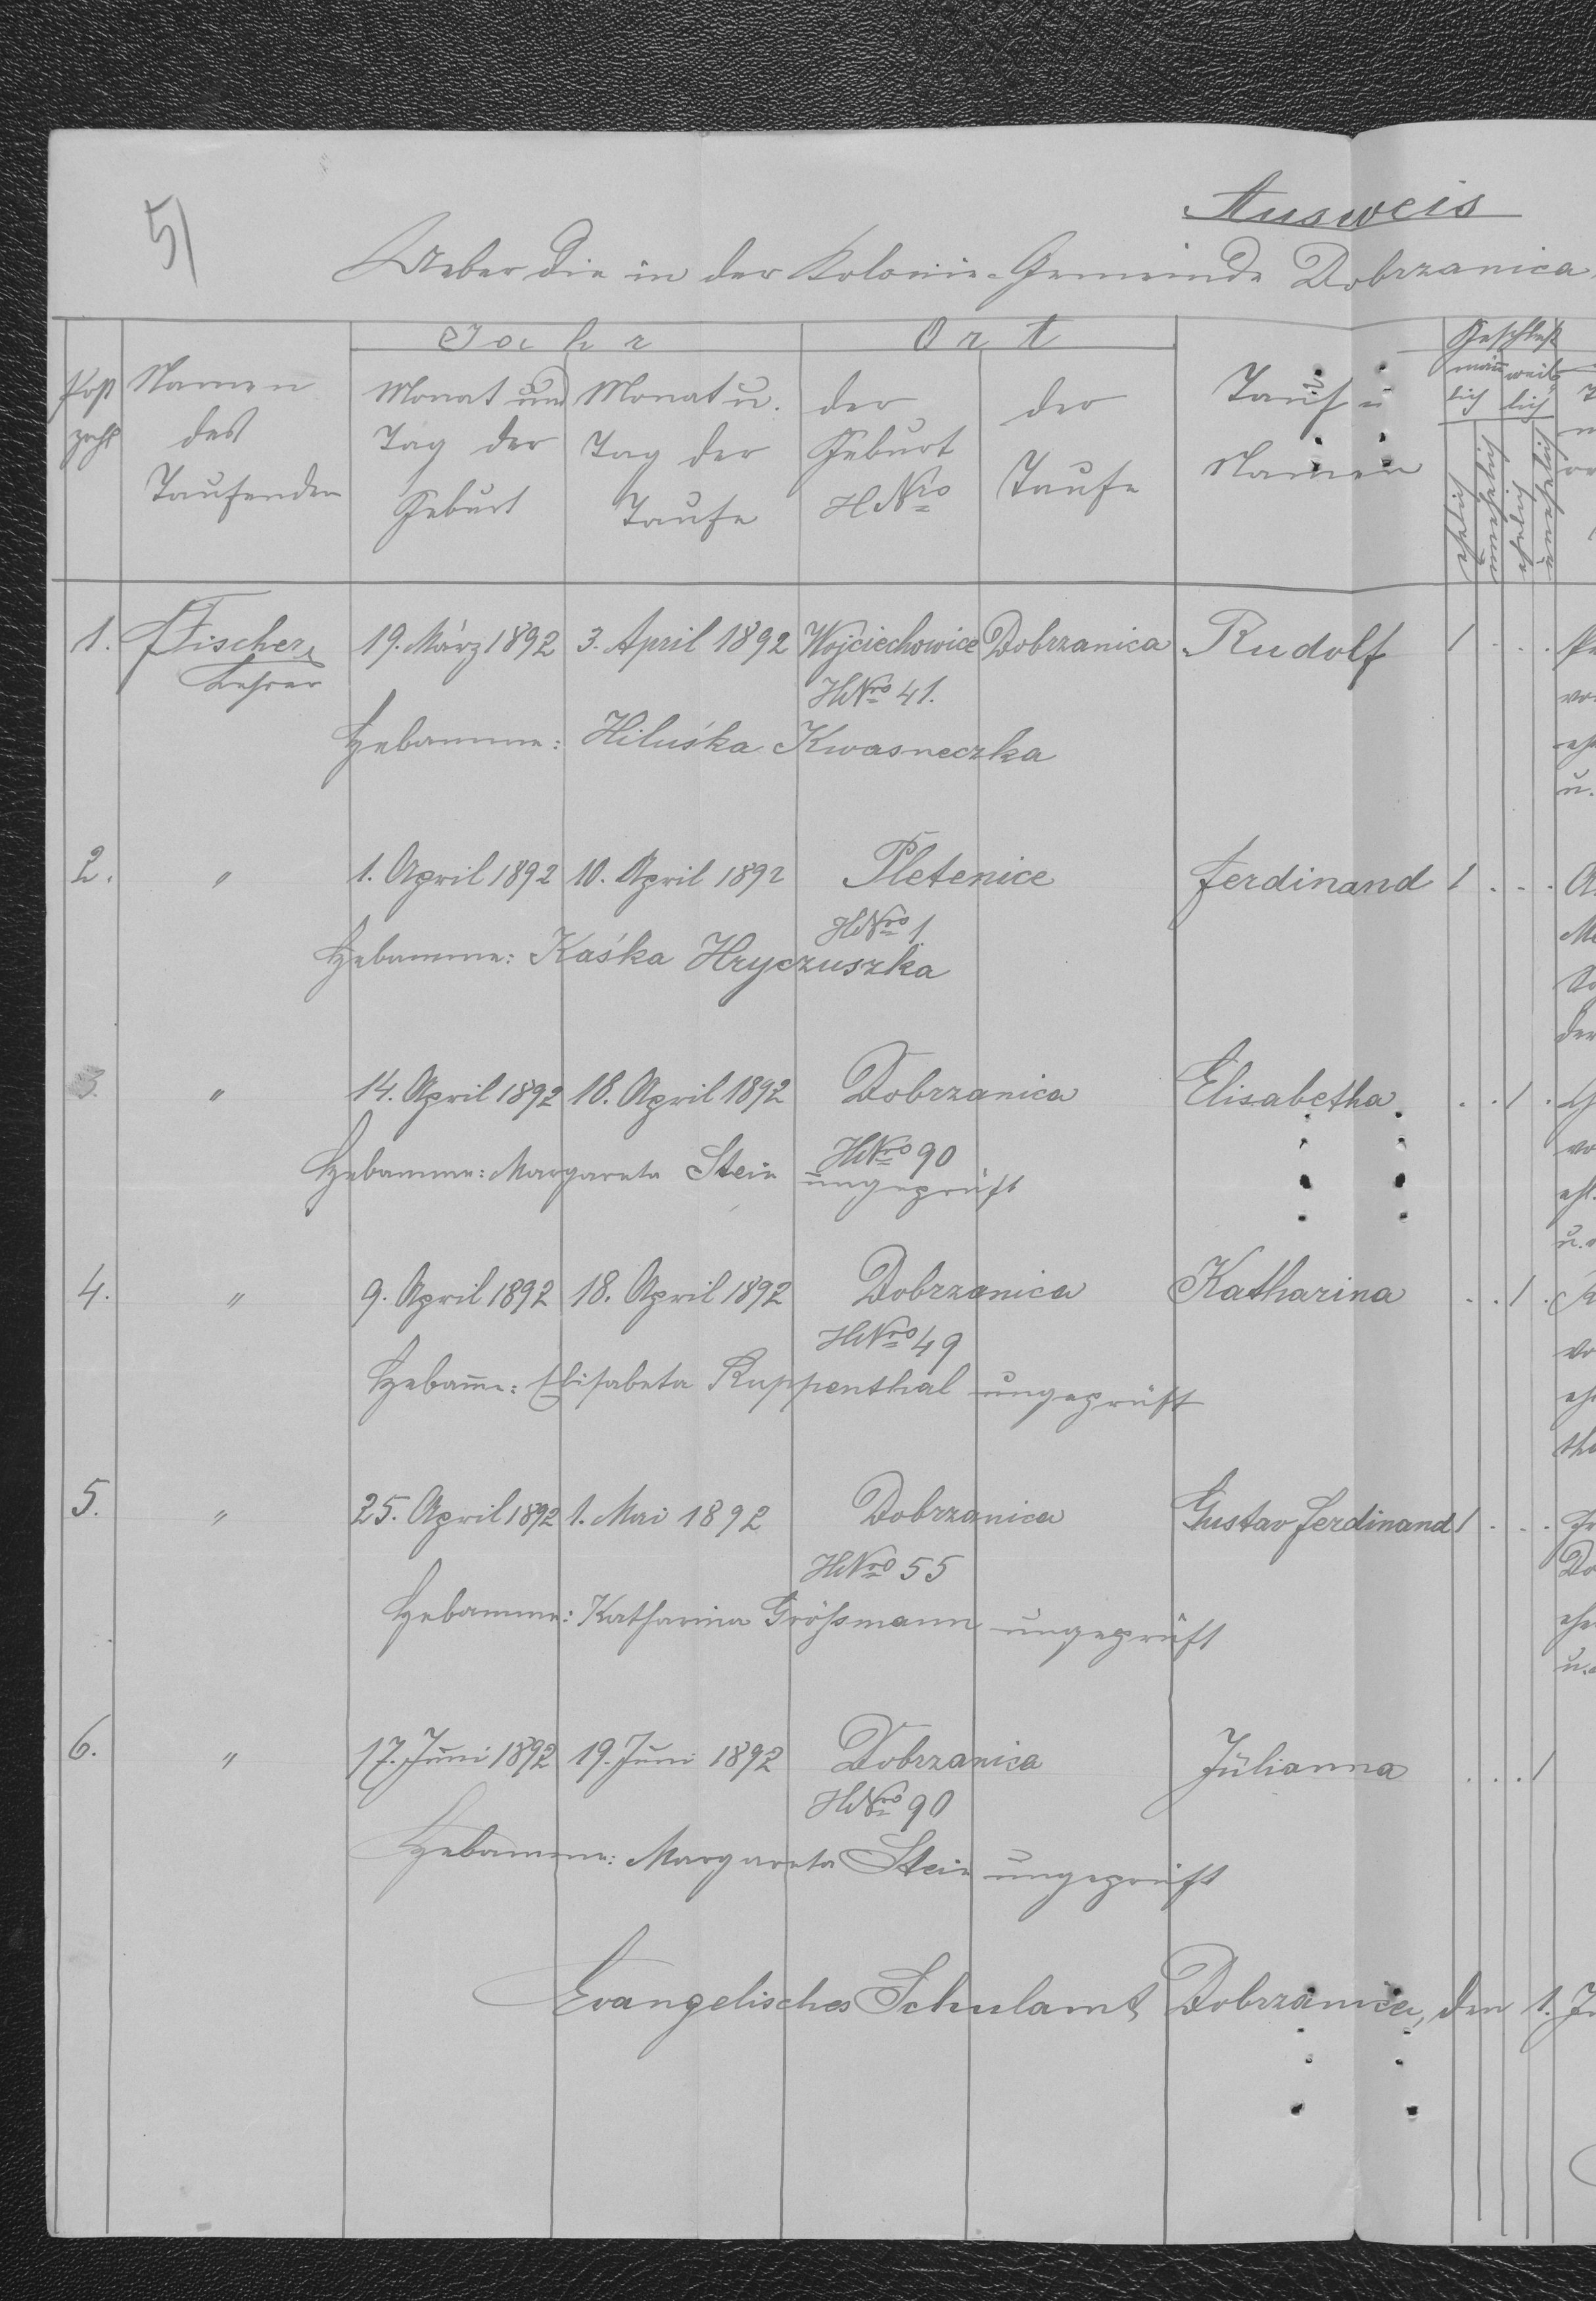 5)
Ausweis
Ueber die in der Kolonie-Gemeinde Dobrzanica
Jahr
Ort
Geschlecht
Post zahl
Namen des Taufenden
Monat und Tag der Geburt
Monat u. Tag der Taufe
der Geburt HNro
der Taufe
Tauf- Namen
männlich
weiblich
ehelich
unehelich
ehelich
unehelich
1. Fischer, 19. März 1892 3. April 1892 Wojciechowice Dobrzanica Rudolf 1 . . .
Lehrer HNro 41.
Hebamme: Hiluśka Kwasneczka
2. " 1. April 1892 10. April 1892 Pletenice Ferdinand 1 . . .
HNro 1
Hebamme: Kaśka Hryczuszka
3. " 14. April 1892 18. April 1892 Dobrzanica Elisabetha . . 1 .
HNro 90
Hebamme: Margareta Stein ungeprüft
4. " 9. April 1892 18. April 1892 Dobrzanica Katharina . . 1 .
HNro 49
Hebam̄e: Elisabeta Ruppenthal ungeprüft
5. " 25. April 1892 1. Mai 1892 Dobrzanica Gustav Ferdinand 1 . . .
HNro 55
Hebamme: Katharina Größmann ungeprüft
6. " 17. Juni 1892 19. Juni 1892 Dobrzanica Julianna . . . 1
HNro 90
Hebamme: Margareta Stein ungeprüft
Evangelisches Schulamt Dobrzanica, den 1.